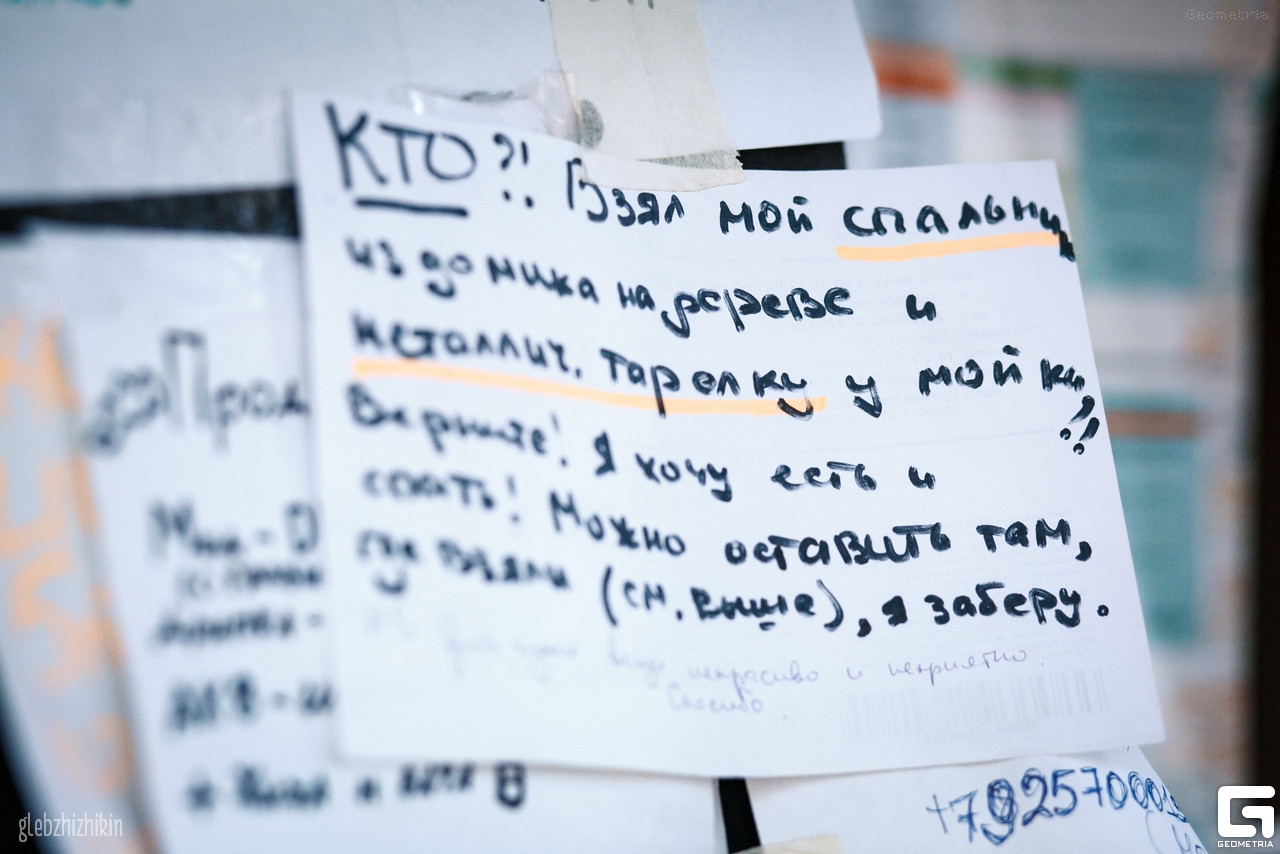 Geometria
КТО?! Взял мой спальник
из домика на дереве и
металлич. тарелку у мойки?!
Верните! Я хочу есть и
спать! Можно оставить там,
где взяли (см. выше), я заберу.
некрасиво и неприятно.
Спасибо
Прод
+792570001
glebzhizhikin
GEOMETRIA